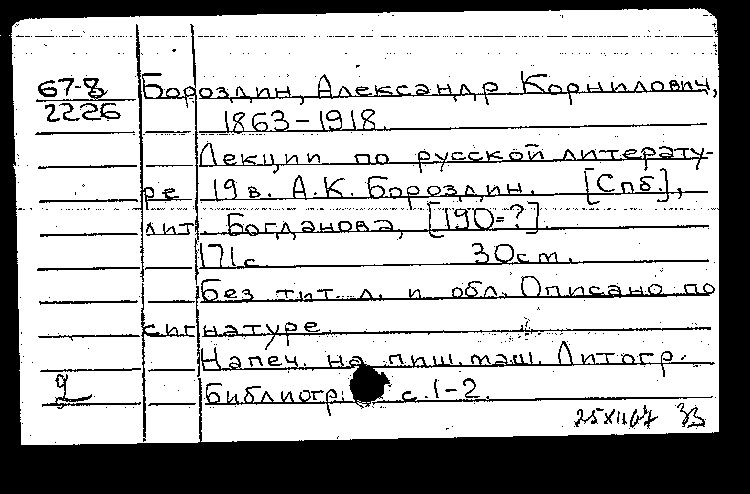 67-8 Бороздин, Александр Корнилович,
2226 1863-1918.
Лекции по русской литерату-
ре 19 в. А.К. Бороздин. [Спб.],
лит. Богданова, [190-?].
171 с 30 см.
Без тит. л. и обл. Описано по
сигнатуре.
Напеч. на пиш. маш. Литогр.
Библиогр. с. 1-2.